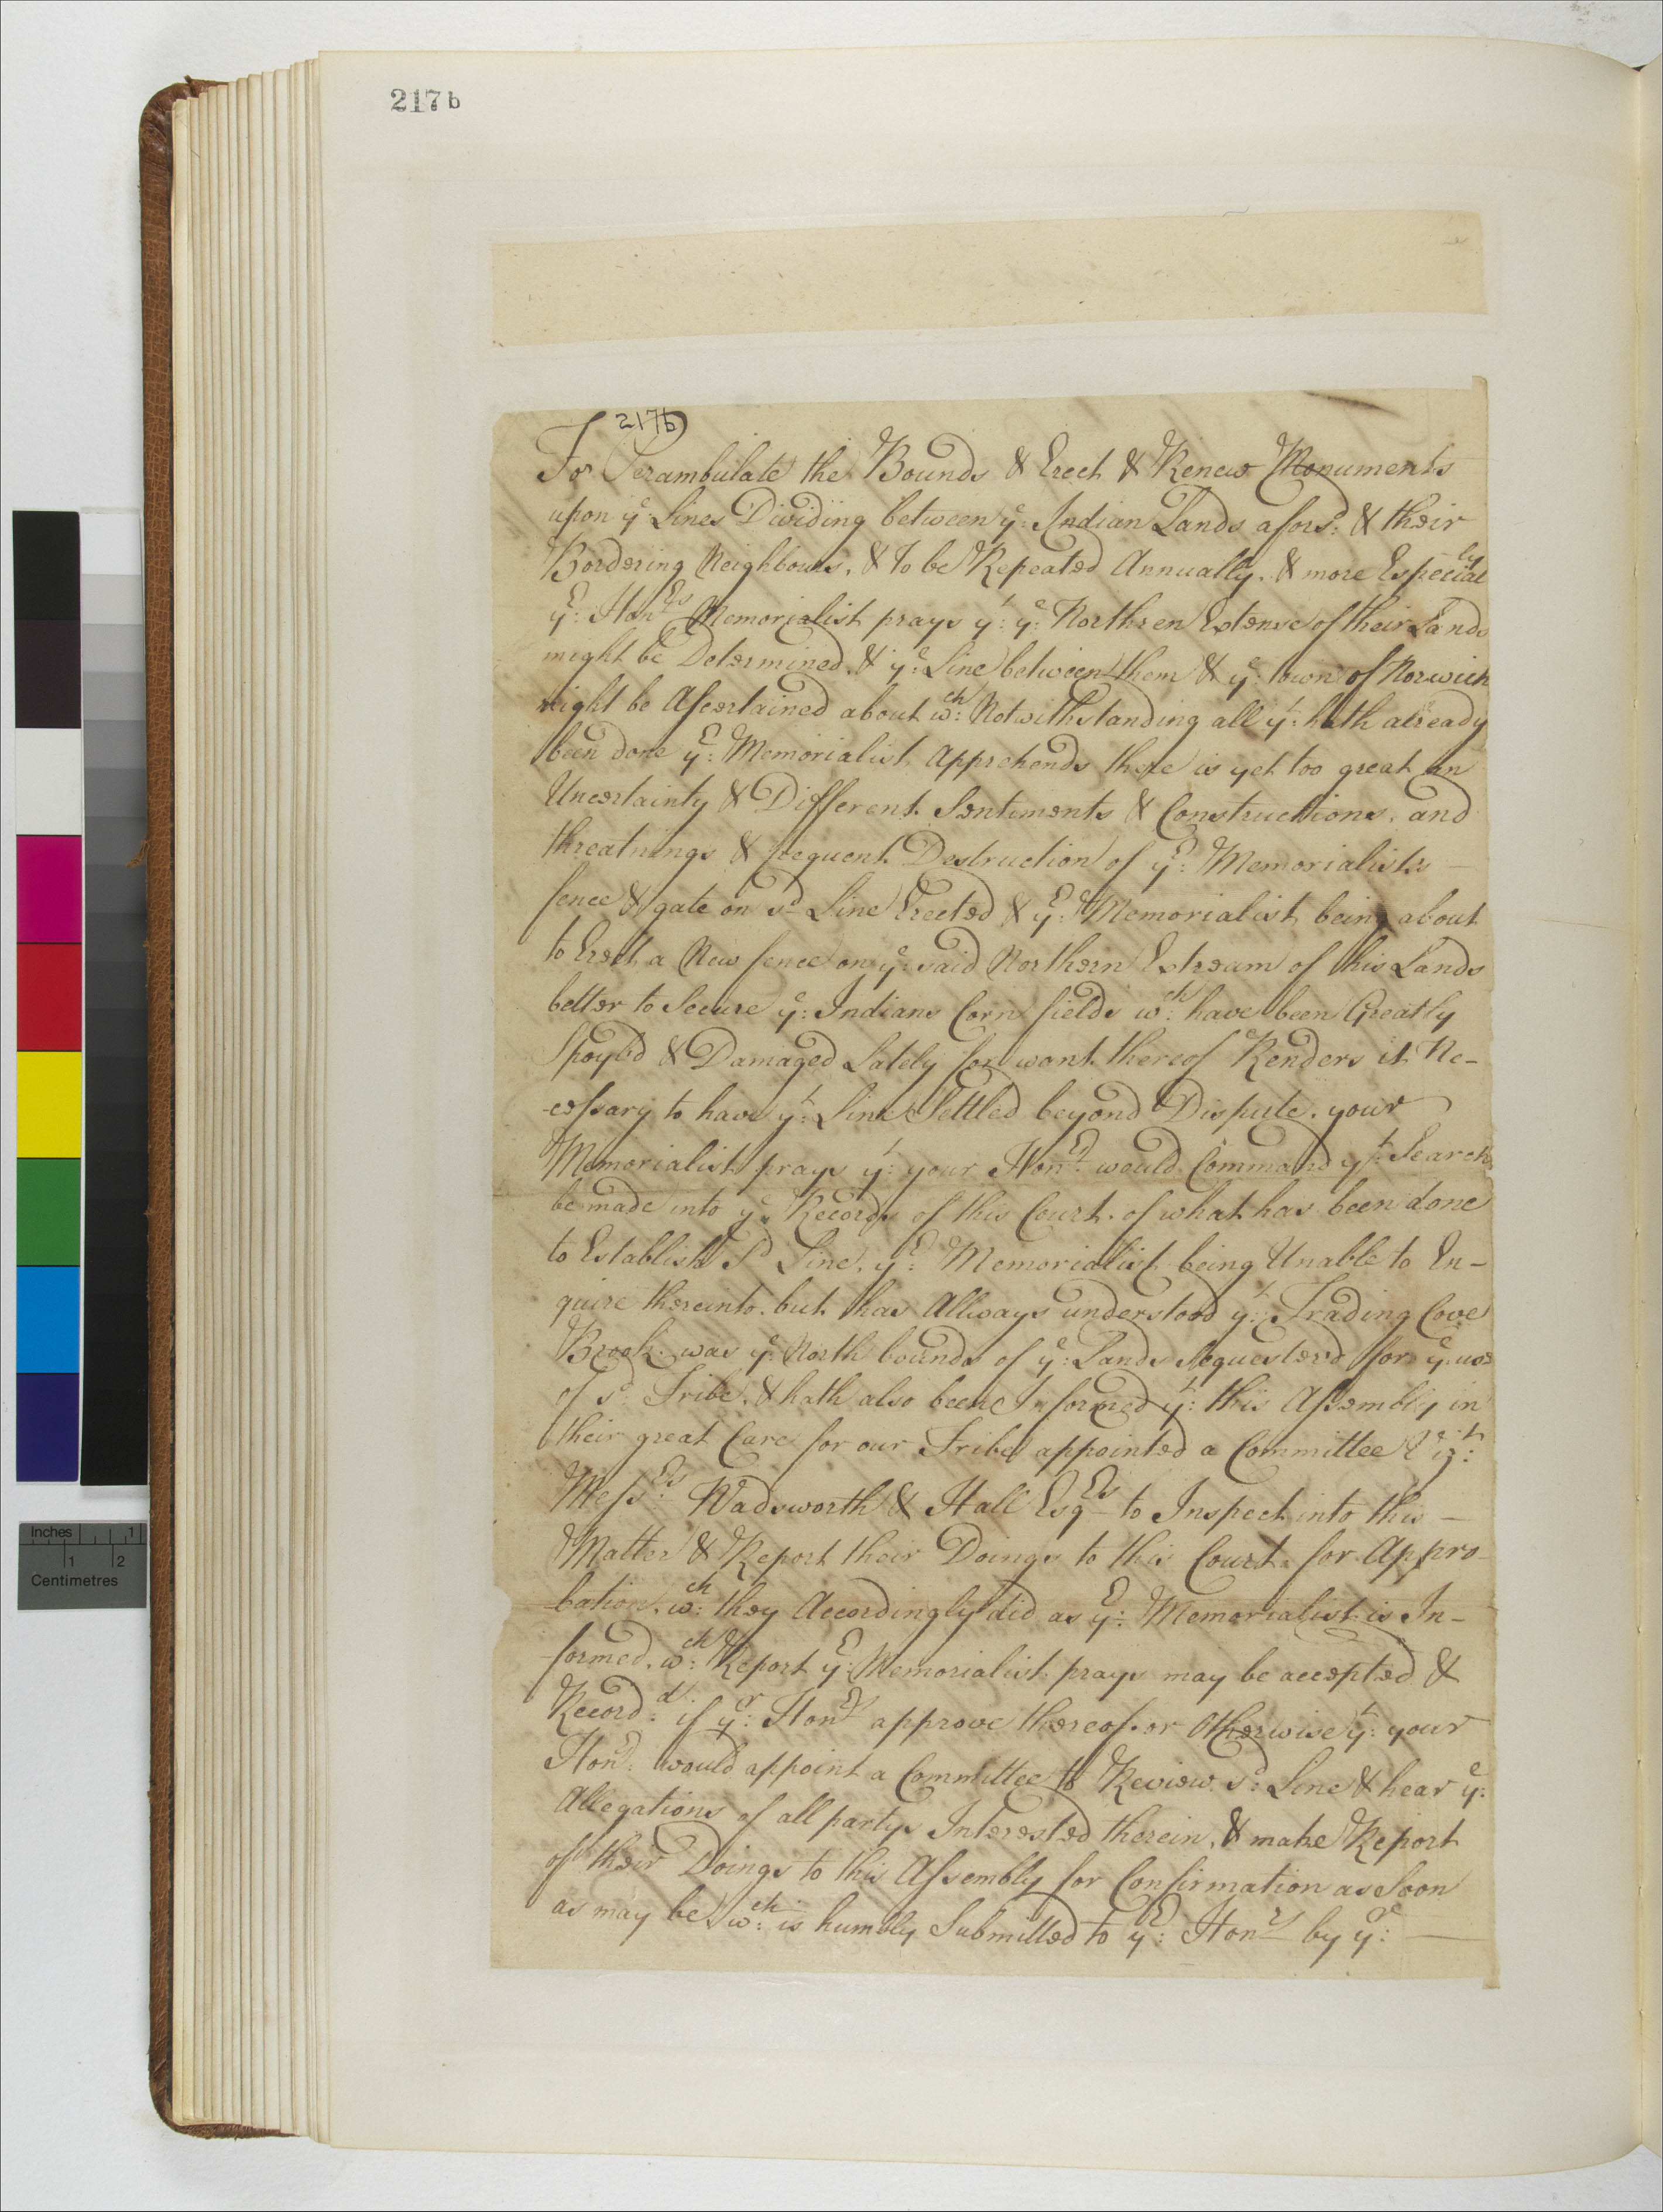 217 b
217b
To Perambulate the Bounds & Erect & Renew Monuments
upon yᵉ: Lines Dividing between yᵉ: Indian Lands aforsᵈ: & their
Bordering Neighbours, & To be Repeated Annually, & more Especialˡʸ
yʳ: Honʳˢ Memorialist prays yᵗ: yᵉ: Northren Extense of their Lands
might be Determined, & yᵉ: Line between them & yᵉ: town of Norwich
might be Ascertained about wᶜʰ: Notwithstanding all yᵗ: hath already
been done yʳ: Memorialist Apprehends there is yet too great an
Uncertainty & Different Sentiments & Constructions, and
threatnings & frequent Destruction of yʳ: Memorialists —
fence & gate on sᵈ Line Erected & yʳ: Memorialist being about
to Erect a New fence on yᵉ: said Northern Extream of his Lands
better to Secure yᵉ: Indians Corn fields wᶜʰ: have been Greatly
Spoyld & Damaged Lately for want thereof Renders it Ne-
-cessary to have yᵗ: Line Settled beyond Dispute. your
Memorialist prays yᵗ: your Honʳˢ would Command yᵗ: Search
be made into yᵉ: Records of this Court. of what has been done
to Establish Sᵈ Line, yʳ: Memorialist being Unable to En-
quire thereinto. but has Allways understood yᵗ: Trading Cove
Brook was yᵉ: North bounds of yᵉ: Lands Sequesterd for yᵉ: use
of sᵈ: Tribe, & hath also been Informed yᵗ: this Assembly in
their great Care for our Tribe appointed a Committee Vizᵗ:
Messʳˢ: Wadsworth & Hall Esqʳˢ to Inspect into this —
Matter & Report their Doings to this Court for Appro-
-bation, wᶜʰ: they Accordingly did as yʳ: Memorialist is In-
-formed, wᶜʰ: Report yʳ: Memorialist prays may be accepted &
Recordᵈ: if yʳ: Honʳˢ approve thereof. or Otherwise yᵗ: your
Honʳˢ: would appoint a Committee to Review sᵈ: Line & hear yᵉ:
Allegations of all partys Interested therein, & make Report
of their Doings to this Assembly for Confirmation as Soon
as may be wᶜʰ: is humbly Submitted to yʳ: Honʳˢ by yʳ: —
Inches 1
1 2
Centimetres